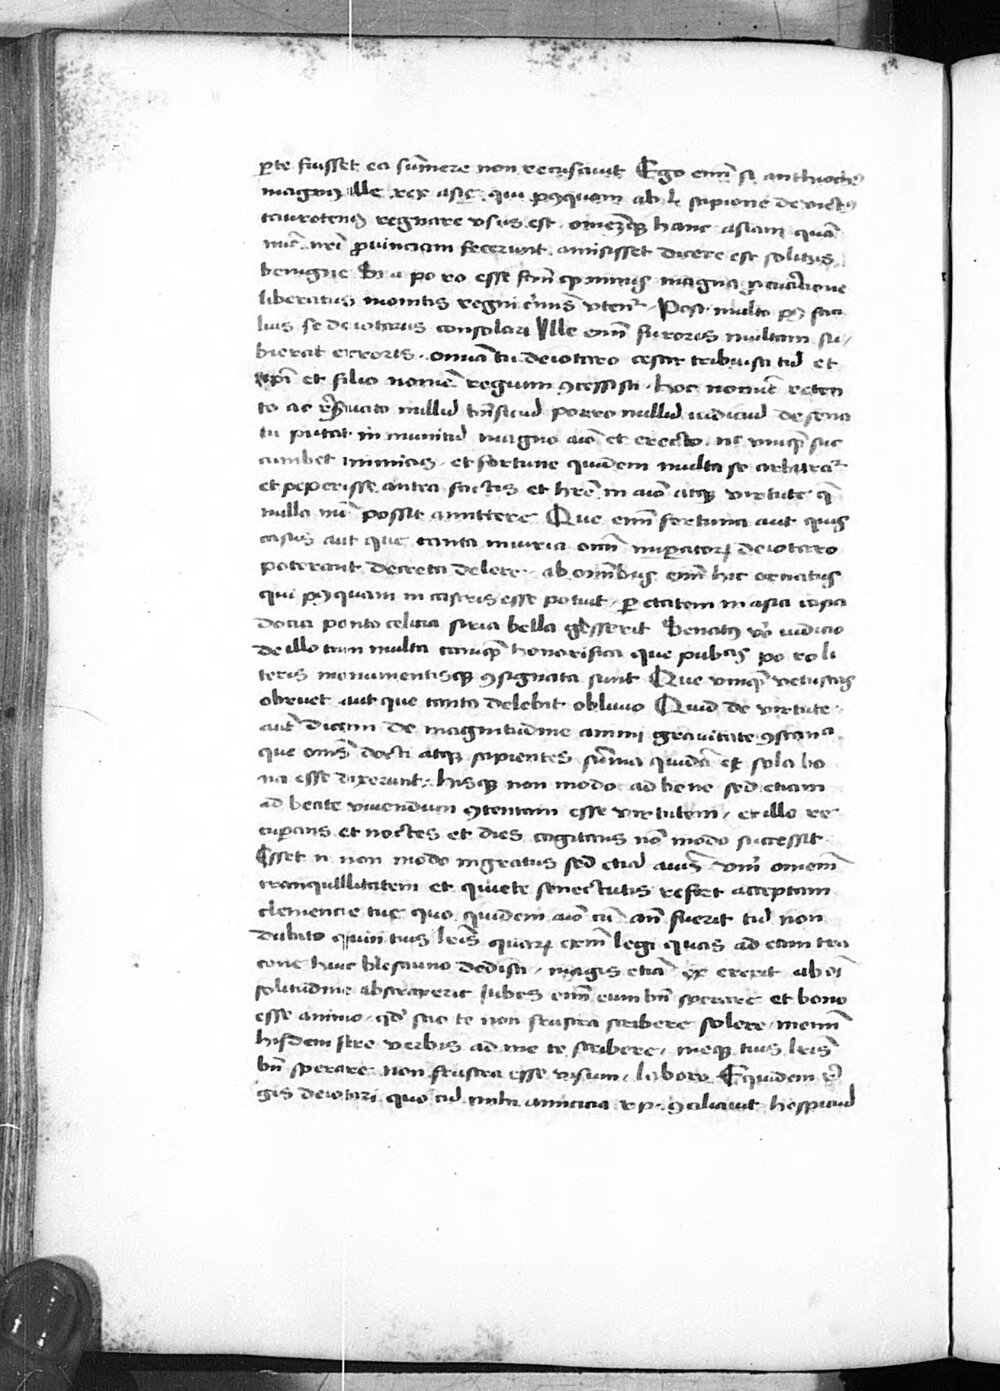 ꝑte fuisset ea sumere non recusauit Ego enī si anthiochꝰ
magnꝰ ille rex asie qui pꝰquam ab l scipione deuictꝰ
taurotenꝰ regnare usus est omezqꝫ hanc asiam quā
nūc nrī prouinciam fecerunt amisisset dicere est solitus
benigne Si a po ro esse ctm qꝫ nimis magna procuratione
liberatus modicis regni t̄mīs uteretr Post multo
lius se deiotarus consolari Ille enim furoris multam su
bierat erroris omnia tu deiotaro cesar tribuisti cū et
ipi et filio nomē regium ꝯcessisti hoc nomīe reten
to ac seruato nullū bnficiū po ro nullū iudiciū de sena
tu putat imminutū magno aīo et erecto nec unqꝫ suc
cumbet inimicis et fortune quidem multa se arbitratr
et peperisse antea factis et hrē in aīo atqꝫ uirtute qꝫ
nullo mō possit amittere Que enī fortuna aut quis
casus aut que tanta iniuria oīm imperatorꝫ deiotaro
poterant decreta delere ab omībus enī hic ornatus
qui pꝰquam in castris esse potuit per etatem in asia capa
docia ponto celicia siria bella gesserit Senatꝰ vō iudicia
de illo tam multa tamqꝫ honorifica que pubcis po ro li
teris monumentisqꝫ ꝯsignata sunt Que umqꝫ uetustas
obruet aut que tanta delebit obliuio Quid de uirtute
aut dicam de magnitudine animi grauitate ꝯstancia
que oms docti atqꝫ sapientes summa quidā et sola bo
na esse dixerunt hisqꝫ non modo ad bene sed etiam
ad beate uiuendum ꝯtentam esse uirtutem et illo re
cuperans et noctes et dies cogitans nō modo successit
Esset n non modo ingratus sed etiā amens uerum omnem
tranquillitatem et quiete senectutis refert acceptam
clemencie tue quo quidem aīo cū ante fuerit tū non
dubito quin tuis lris quarꝫ exemplum legi quas ad eum tra
cone huic blesauno dedisti magis etiā se erexit ab oī
solitudine abstraxerit Iubes enī eum bn̄ sperare et bono
esse animo qd scio te non frustra scribere solere memini
hisdem fere uerbis ad me te scribere meqꝫ tuis lris
bn̄ sperare non frustra esse uisum laboro Equidem re
gis deiotari quo cū mihi amicicia r p ꝯciliauit hospiciū